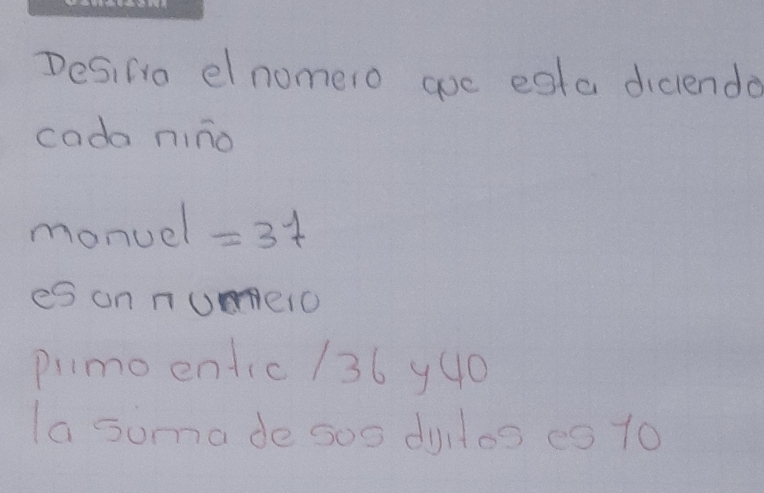 Desifra el nomero que esta diciendo
cada niño
manuel = 37
es un numero
primo entre / 36 y 40
la suma de sus dijitos es 10